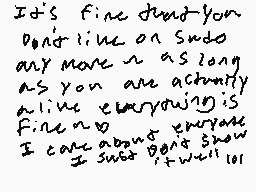 It's fine that you
Don't live on Sudo
any more n as long
as you are actually
alive everything is
fine n ♡
I care about everyone
I Just Don't Show
it well lol